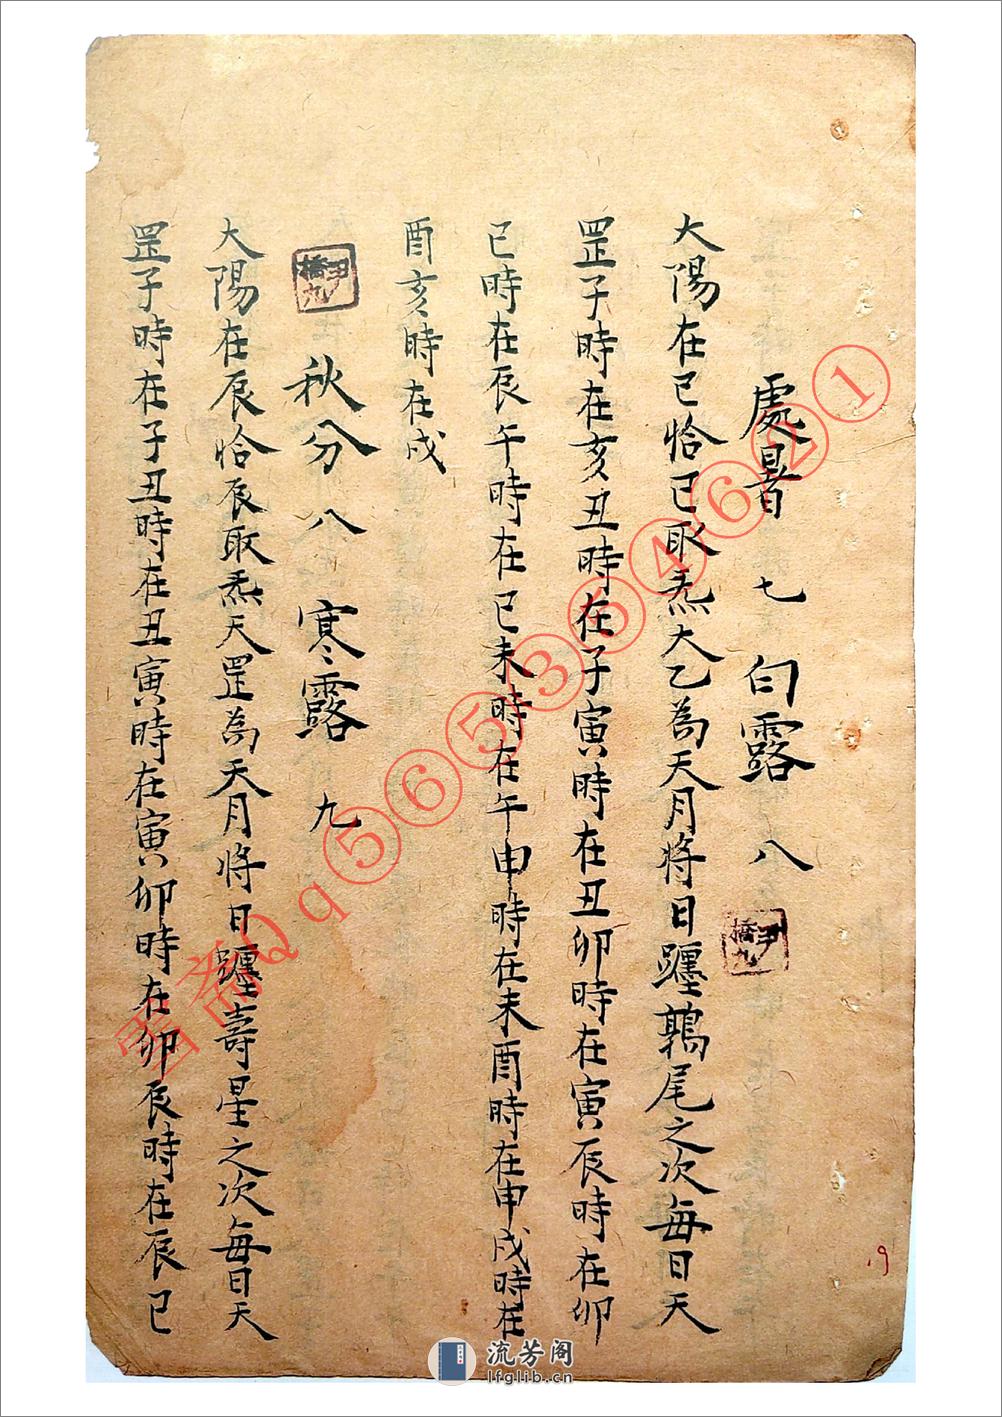 處暑 七 白露 八
大陽在巳恰巳取炁大乙為天月將日躔鶉尾之次每日天
罡子時在亥丑時在子寅時在丑卯時在寅辰時在卯
巳時在辰午時在巳未時在午申時在未酉時在申戌時在
酉亥時在戌
秋分 八 寒露 九
大陽在辰恰辰取炁天罡為天月將日躔壽星之次每日天
罡子時在子丑時在丑寅時在寅卯時在卯辰時在辰巳
尹橋九
尹橋九
Qq565364621
19
流芳阁
lfglib.cn